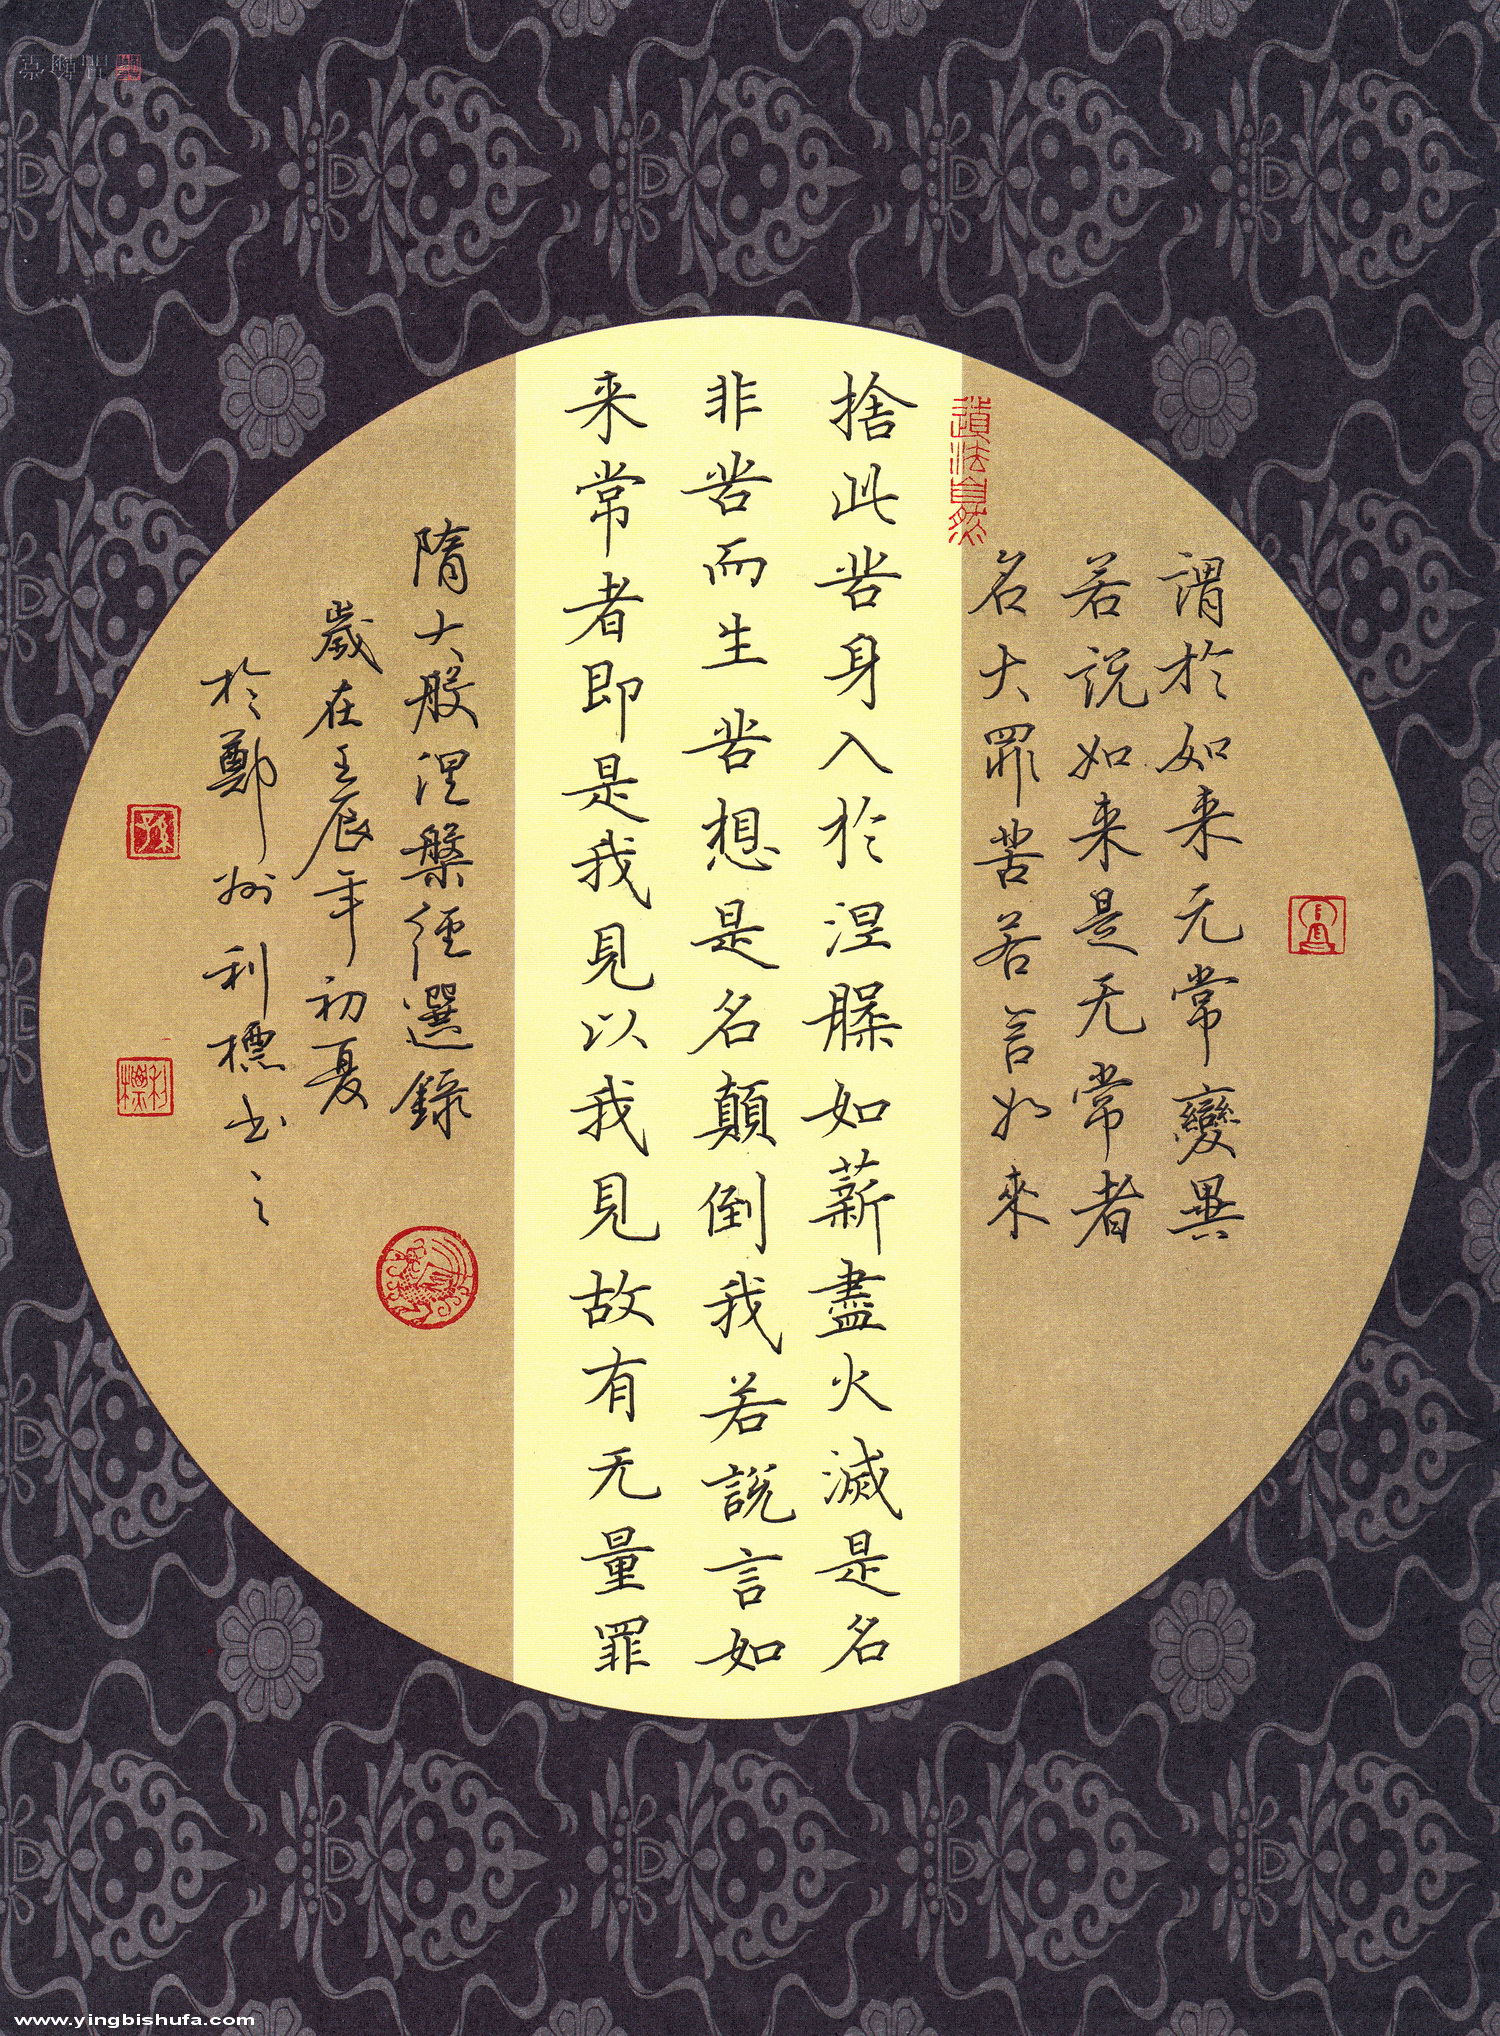 謂於如来无常變異
若説如来是无常者
名大罪苦若言如來
道法自然
捨此苦身入於涅槃如薪盡火滅是名
非苦而生苦想是名顛倒我若說言如
来常者即是我見以我見故有无量罪
隋大般涅槃經選録
歲在壬辰年初夏
於鄭州利標书之
利標
www.yingbishufa.com